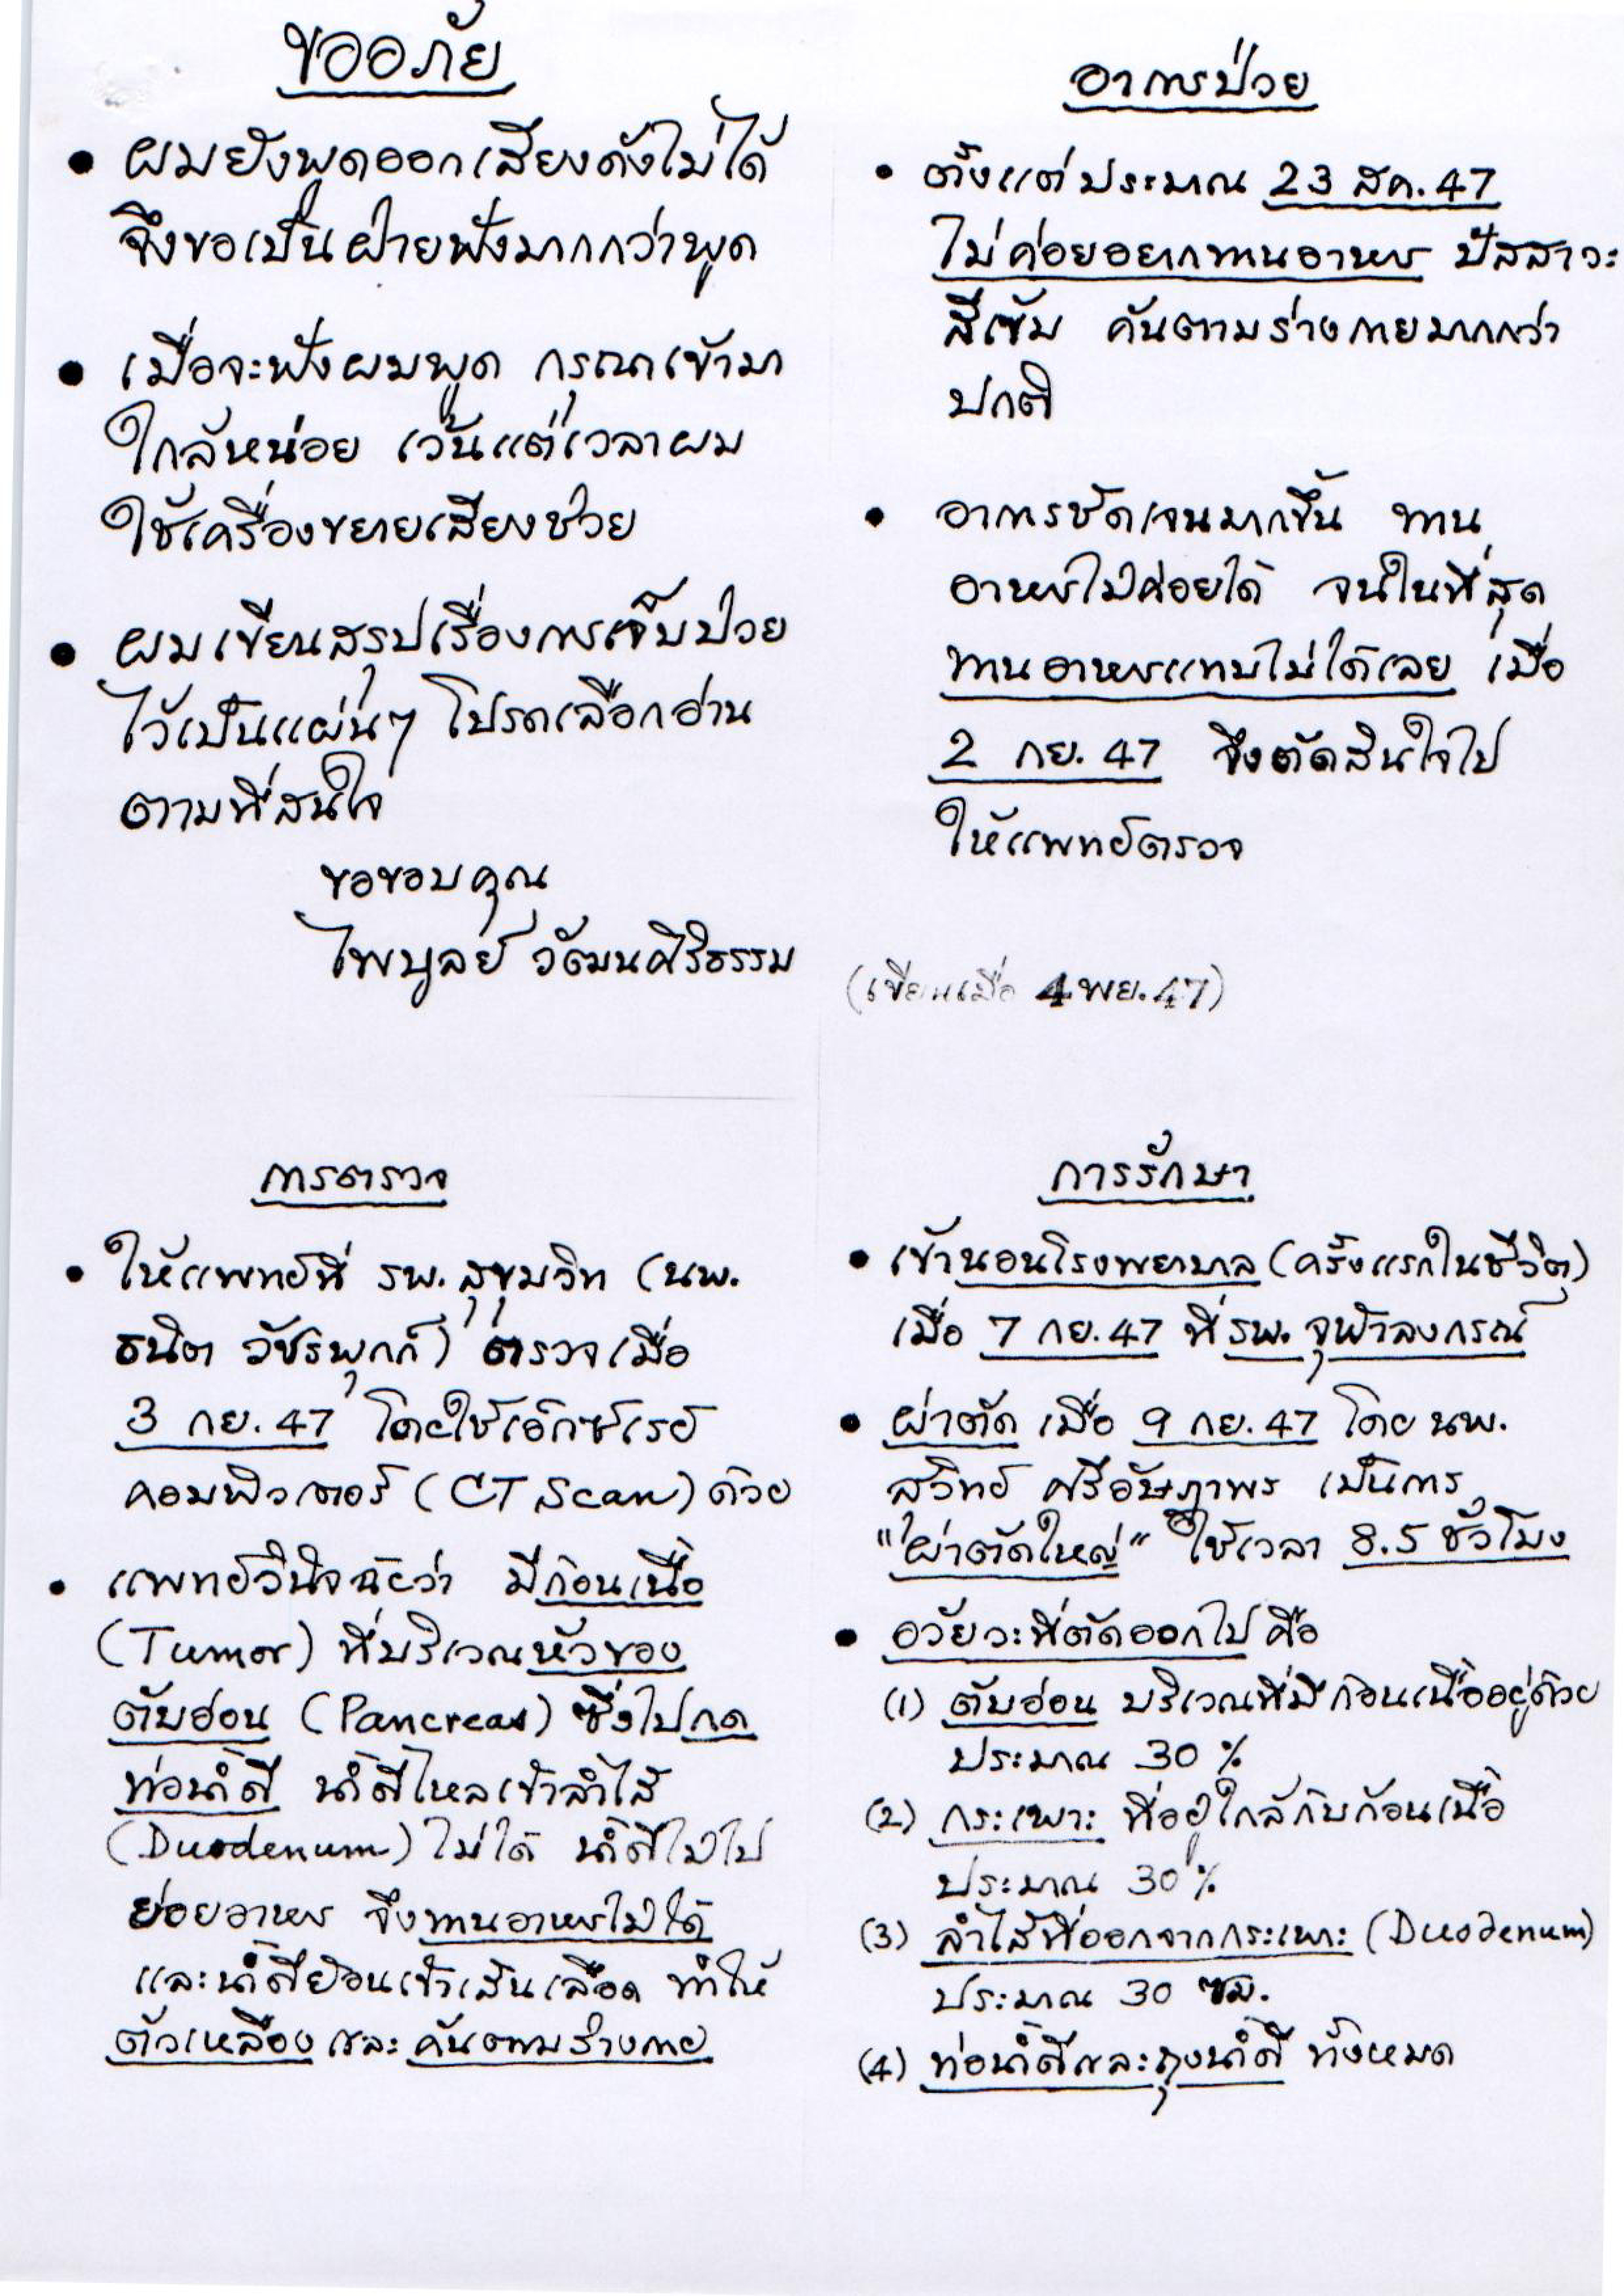 ขออภัย
• ผมยังพูดออกเสียงดังไม่ได้
จึงขอเป็นฝ่ายฟังมากกว่าพูด
• เมื่อจะฟังผมพูด กรุณาเข้ามา
ใกล้หน่อย เว้นแต่เวลาผม
ใช้เครื่องขยายเสียงช่วย
• ผมเขียนสรุปเรื่องการเจ็บป่วย
ไว้เป็นแผ่นๆ โปรดเลือกอ่าน
ตามที่สนใจ
ขอขอบคุณ
ไพบูลย์ วัฒนศิริธรรม
อาการป่วย
• ตั้งแต่ประมาณ 23 สค. 47
ไม่ค่อยอยากทานอาหาร ปัสสาวะ
สีเข้ม คันตามร่างกายมากกว่า
ปกติ
• อาการชัดเจนมากขึ้น ทาน
อาหารไม่ค่อยได้ จนในที่สุด
ทานอาหารแทบไม่ได้เลย เมื่อ
2 กย. 47 จึงตัดสินใจไป
ให้แพทย์ตรวจ
(เขียนเมื่อ 4 พย. 47)
การตรวจ
• ให้แพทย์ที่ รพ. สุขุมวิท (นพ.
ธนิต วัชรพุกก์) ตรวจเมื่อ
3 กย. 47 โดยใช้เอ็กซ์เรย์
คอมพิวเตอร์ (CT Scan) ด้วย
• แพทย์วินิจฉัยว่า มีก้อนเนื้อ
(Tumor) ที่บริเวณหัวของ
ตับอ่อน (Pancreas) ซึ่งไปกด
ท่อน้ำดี น้ำดีไหลเข้าลำไส้
(Duodenum) ไม่ได้ น้ำดีไม่ไป
ย่อยอาหาร จึงทานอาหารไม่ได้
และน้ำดีย้อนเข้าเส้นเลือด ทำให้
ตัวเหลือง และ คันตามร่างกาย
การรักษา
• เข้านอนโรงพยาบาล (ครั้งแรกในชีวิต)
เมื่อ 7 กย. 47 ที่ รพ. จุฬาลงกรณ์
• ผ่าตัด เมื่อ 9 กย. 47 โดย นพ.
สุวิทย์ ศรีอัษฎาพร เป็นการ
"ผ่าตัดใหญ่" ใช้เวลา 8.5 ชั่วโมง
• อวัยวะที่ตัดออกไป คือ
(1) ตับอ่อน บริเวณที่มีก้อนเนื้ออยู่ด้วย
ประมาณ 30 %
(2) กระเพาะ ที่อยู่ใกล้กับก้อนเนื้อ
ประมาณ 30 %
(3) ลำไส้ที่ออกจากกระเพาะ (Duodenum)
ประมาณ 30 ซม.
(4) ท่อน้ำดีและถุงน้ำดี ทั้งหมด